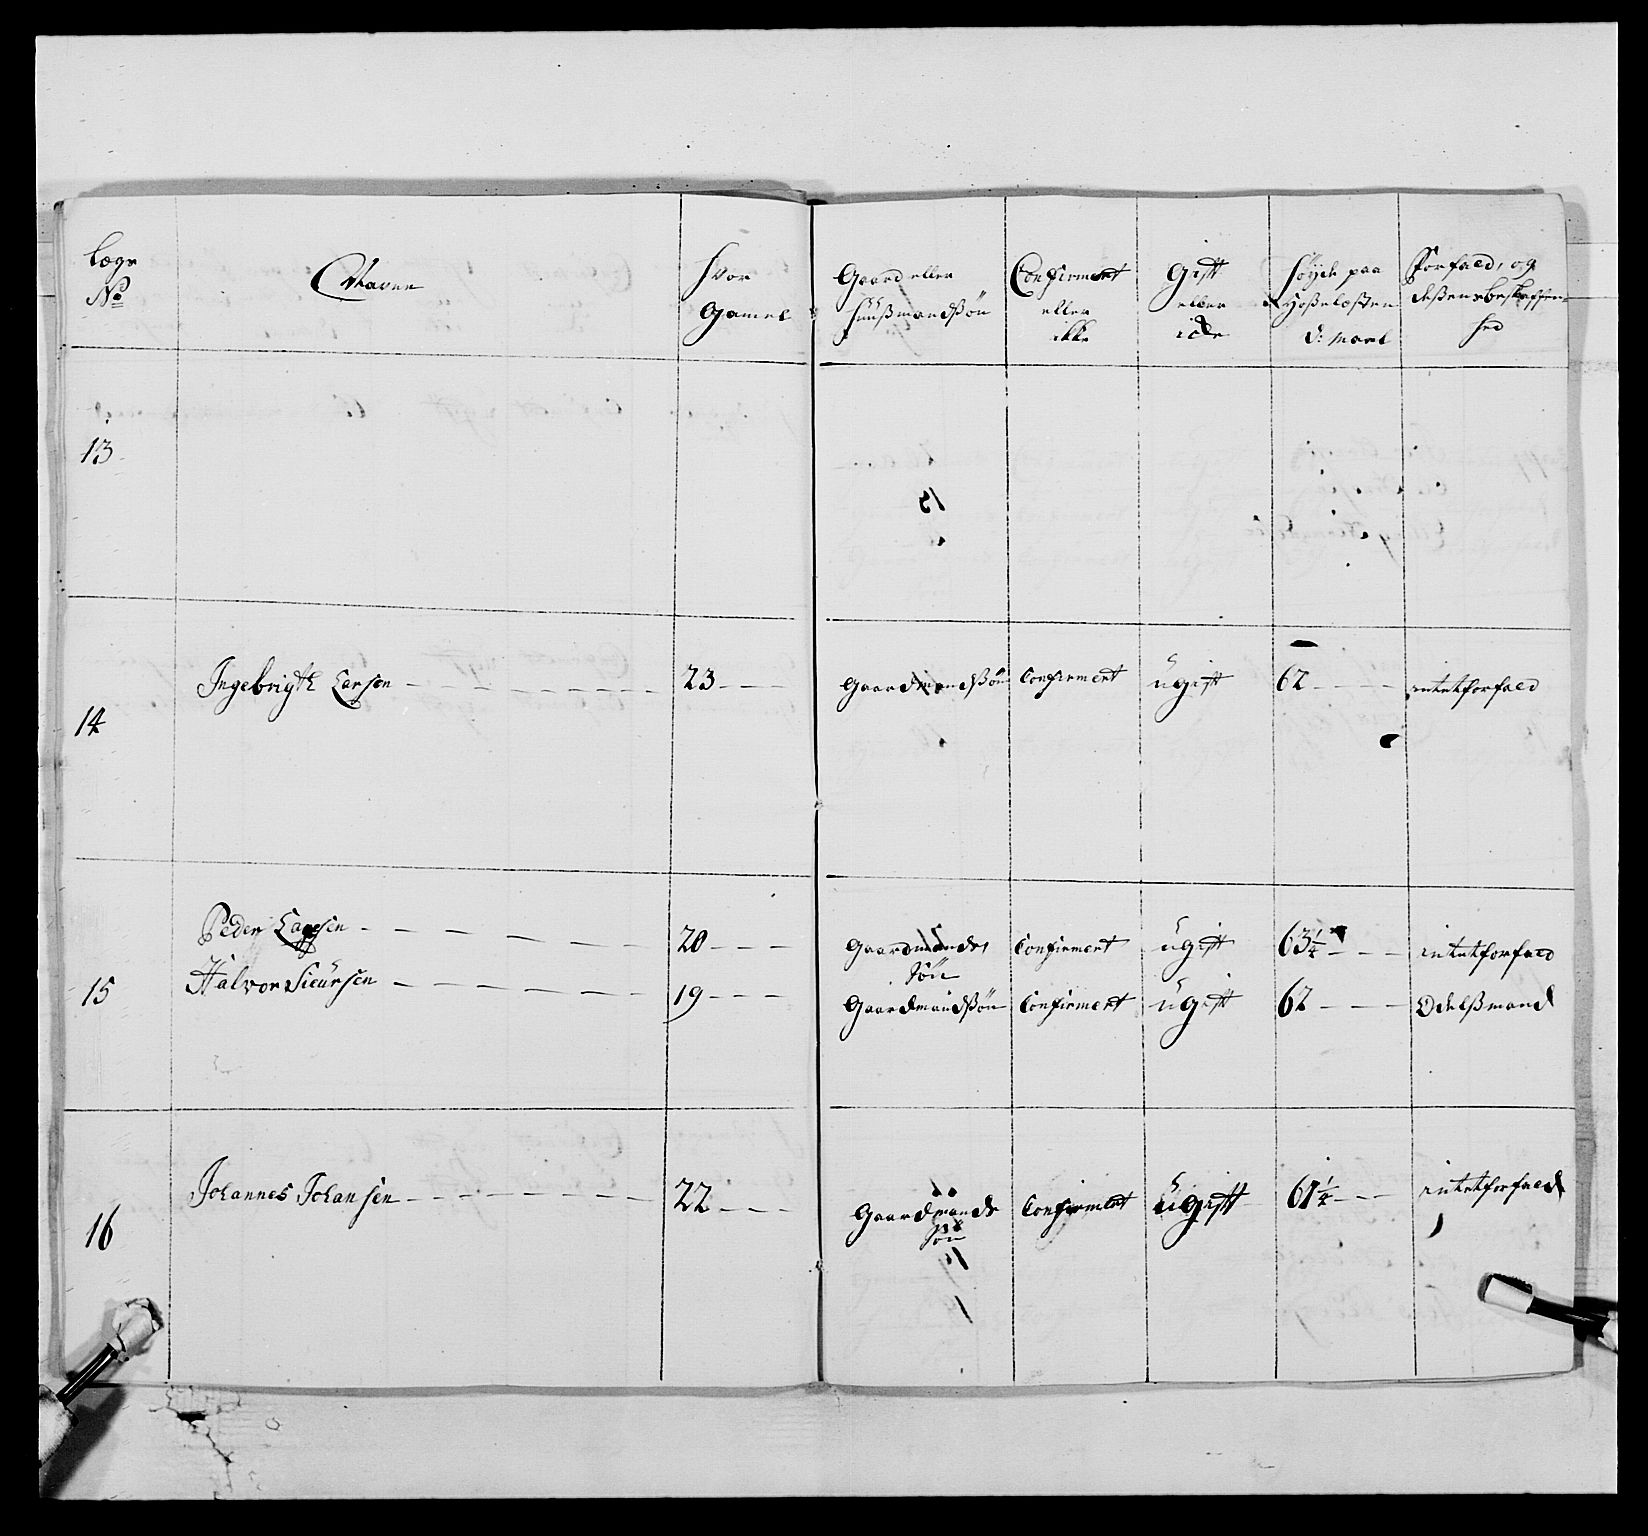 Lægs No Navne Hvor Gamel Gaard eller Huußmandßön Confirmert eller ikke Gift eller icke Höyde paa Hoßelosten d: Maal Forfald, og deßens beskaffenhed
13
14 Ingebrigth Larsen 23 Gaardmandßön Confirmert ugift 62 intet forfald
15 Peder Larsen 20 Gaardmands sön Confirmert ugift 63¼ intet forfald
Halvor Siursen 19 Gaardmandßön Confirmert ugift 62 Odelßmand
16 Johannes Johansen 22 Gaardmands sön Confirmert ugift 61¼ intet forfald